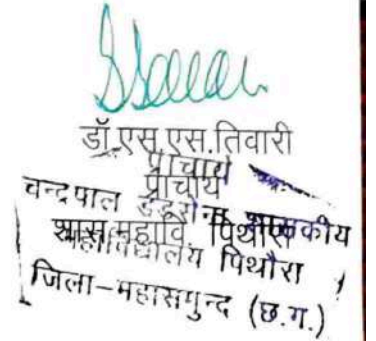 डॉ.एस.एस.तिवारी
प्राचार्य
प्राचार्य
चन्द्रपाल शासकीय
शास.महावि. पिथौरा
महाविद्यालय पिथौरा
जिला-महासमुन्द (छ.ग.)